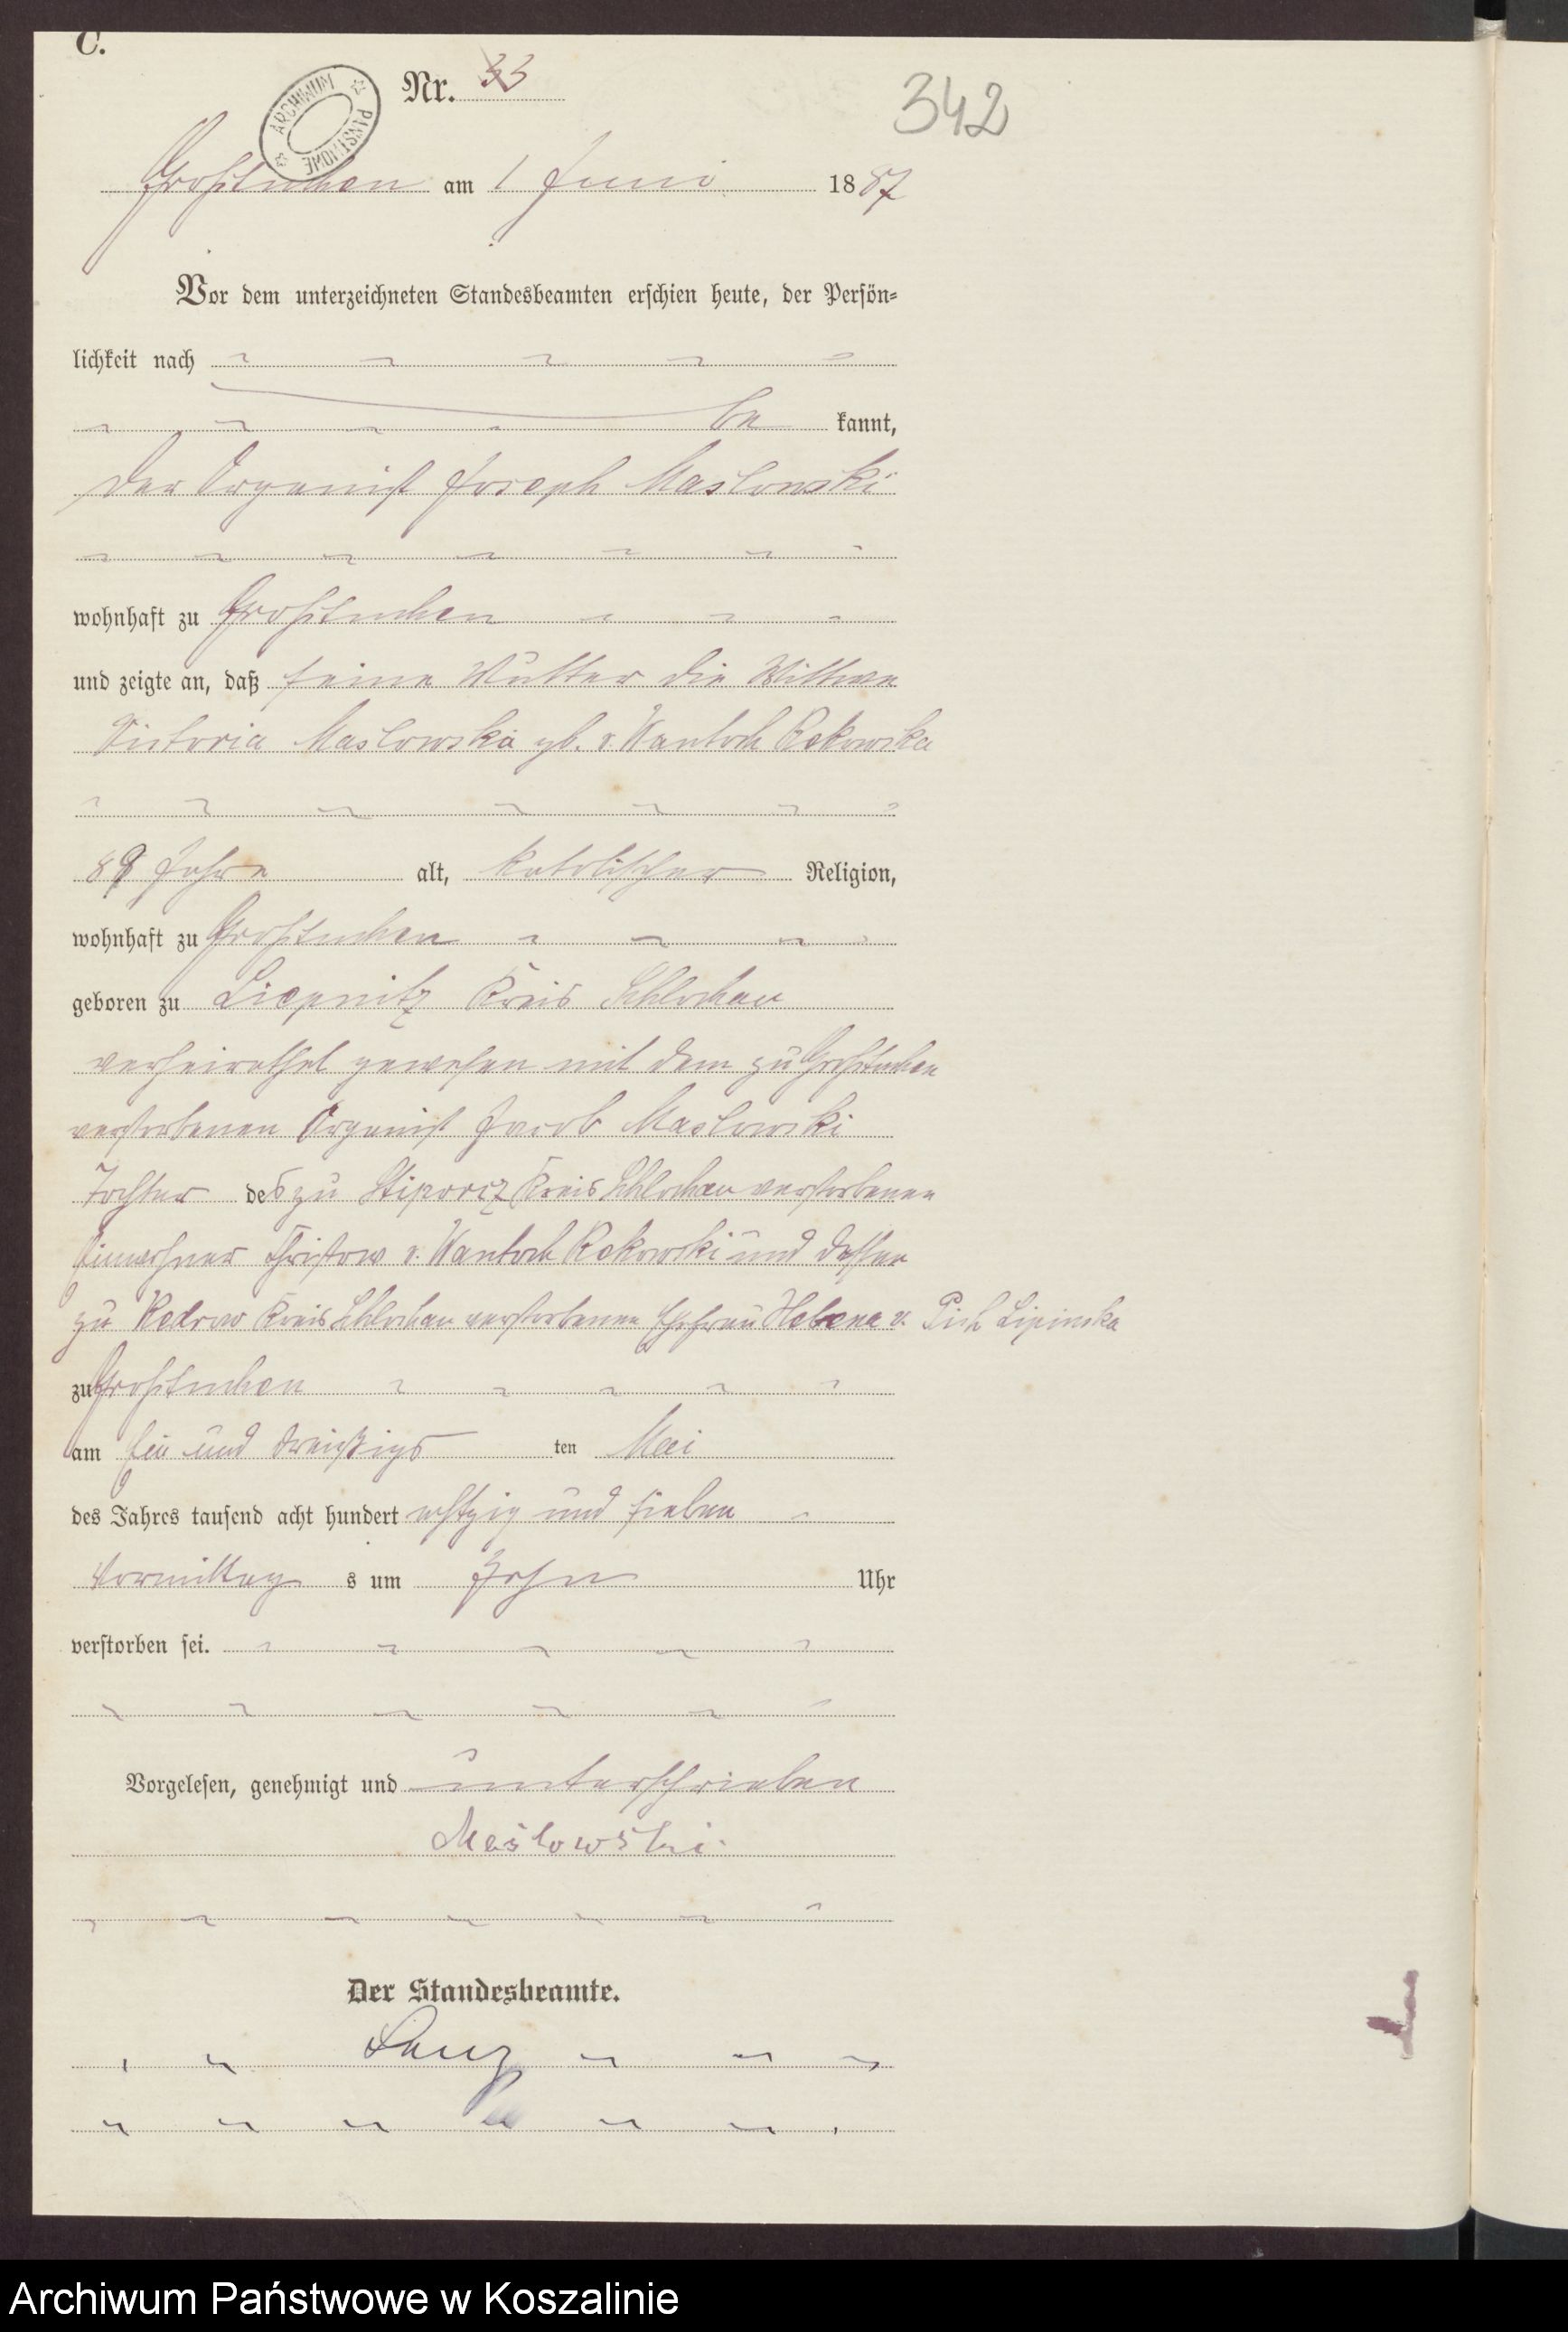 C.
Nr. 33
342
ARCHIWUM PAŃSTWOWE
Großtuchen am 1 Juni 1887
Vor dem unterzeichneten Standesbeamten erschien heute, der Persön-
lichkeit nach
be kannt,
der Organist Joseph Maslowski
wohnhaft zu Großtuchen
und zeigte an, daß seine Mutter die Wittwe
Victoria Maslowska gb. v. Wantoch Rekowska
Jahre alt, katolischer Religion,
wohnhaft zu Großtuchen
geboren zu Liepnitz Kreis Schlochau
verheirathet gewesen mit dem zu Großtuchen
verstorbenen Organist Jacob Maslowski
Tochter des zu Kreis Schlochau verstorbenen
Einwohner v. Wantoch Rekowski und dessen
zu Kreis Schlochau verstorbenen Ehefrau Helena v. Pich Lipinska
zu Großtuchen
am ein und dreißigs ten Mai
des Jahres tausend acht hundert achtzig und sieben
Vormittag s um Zehn Uhr
verstorben sei.
Vorgelesen, genehmigt und unterschrieben
Maslowski.
Der Standesbeamte.
Archiwum Państwowe w Koszalinie